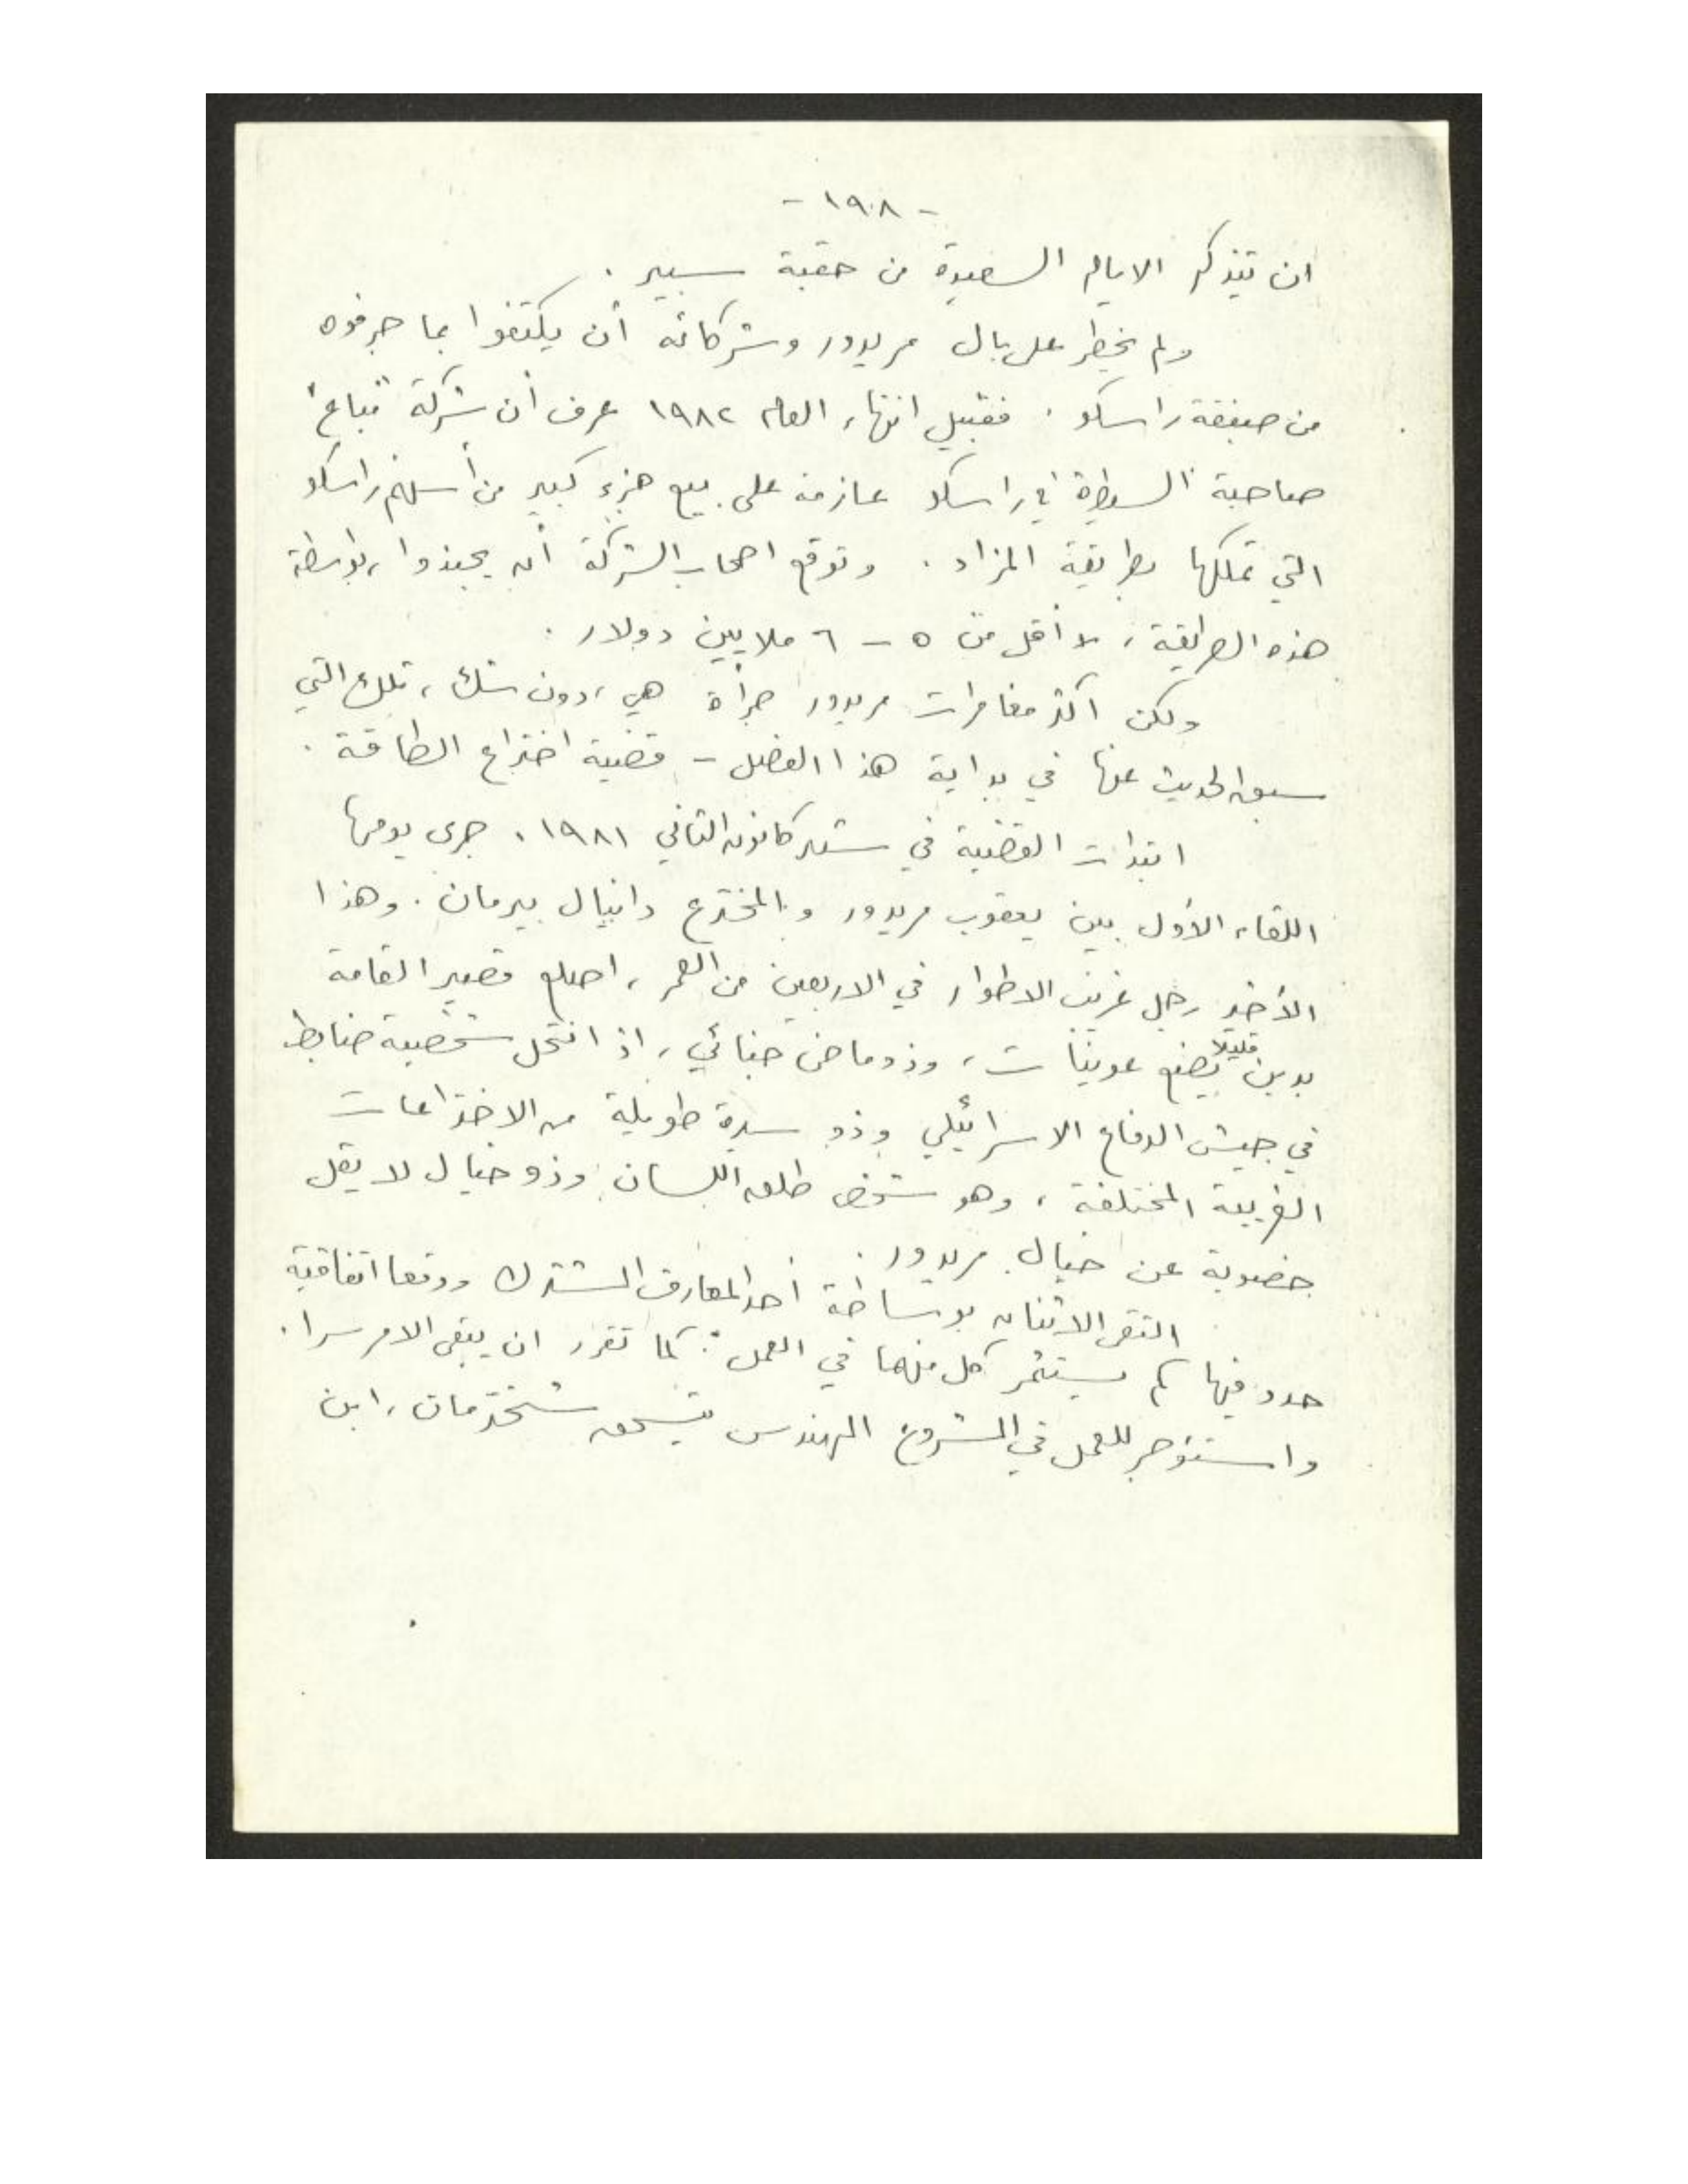 - ١٩٠٨ -
ان تيذكر الايام السعيدة من حقبة سبير .
ولم يخطر على بال مريدور وشركائه أن يكتفوا بما جرفوه
من صفقة راسكو . فقبيل انتهاء العام ١٩٨٢ عرف أن شركة "مباع"
صاحبة السيطرة في راسكو عازمة على بيع جزء كبير من أسهم راسكو
التي تملكها بطريقة المزاد . وتوقع اصحاب الشركة أن يجنوا ، بواسطة
هذه الطريقة ، لا أقل من ٥ – ٦ ملايين دولار .
ولكن اكثر مغامرات مريدور جرأة هي ، دون شك ، تلك التي
سبق الحديث عنها في بداية هذا الفصل – قضية اختراع الطاقة .
ابتدات القضية في شهر كانون الثاني ١٩٨١ . جرى يومها
اللقاء الأول بين يعقوب مريدور والمخترع دانيال بيرمان . وهذا
الأخير رجل غريب الاطوار في الاربعين من العمر ، اصلع قصير القامة
بدين قليلا يضع عوينات ، وذو ماض جنائي ، اذ انتحل شخصية ضابط
في جيش الدفاع الاسرائيلي وذو سيرة طويلة من الاختراعات
الغريبة المختلفة ، وهو شخص طلق اللسان وذو خيال لا يقل
خصوبة عن خيال مريدور .
التقى الاثنان بوساطة أحد المعارف المشترك ووقعا اتفاقية
حدد فيها كم يستثمر كل منهما في العمل . كما تقرر ان يبقى الامر سرا .
واستؤجر للعمل في المشروع المهندس يتسحق شخترمان ، ابن